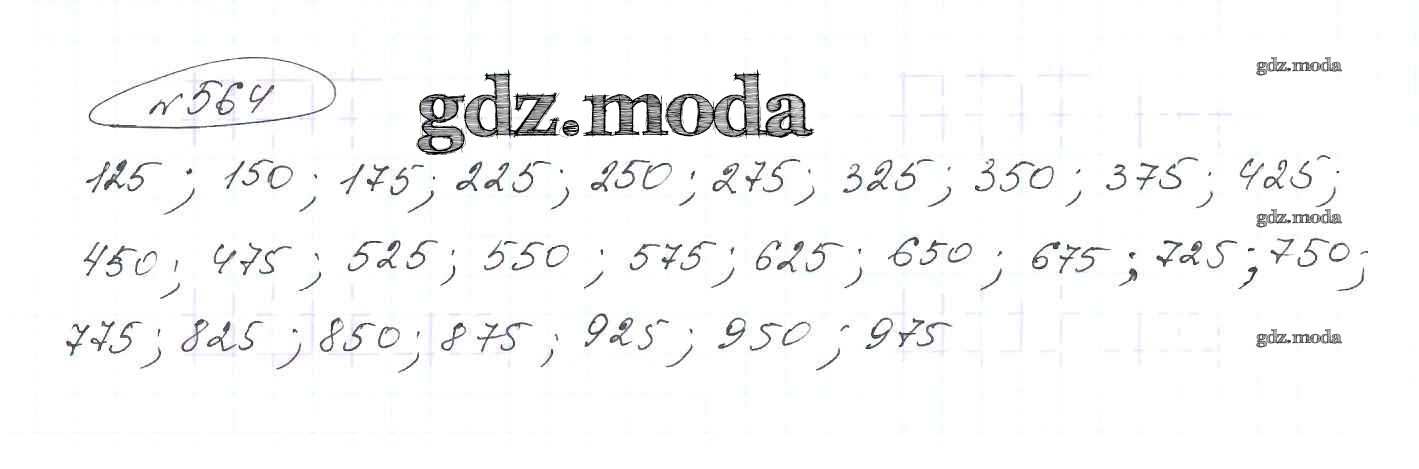 № 564
gdz.moda
gdz.moda
125 ; 150 ; 175 ; 225 ; 250 ; 275 ; 325 ; 350 ; 375 ; 425 ;
gdz.moda
450 ; 475 ; 525 ; 550 ; 575 ; 625 ; 650 ; 675 ; 725 ; 750 ;
775 ; 825 ; 850 ; 875 ; 925 ; 950 ; 975
gdz.moda